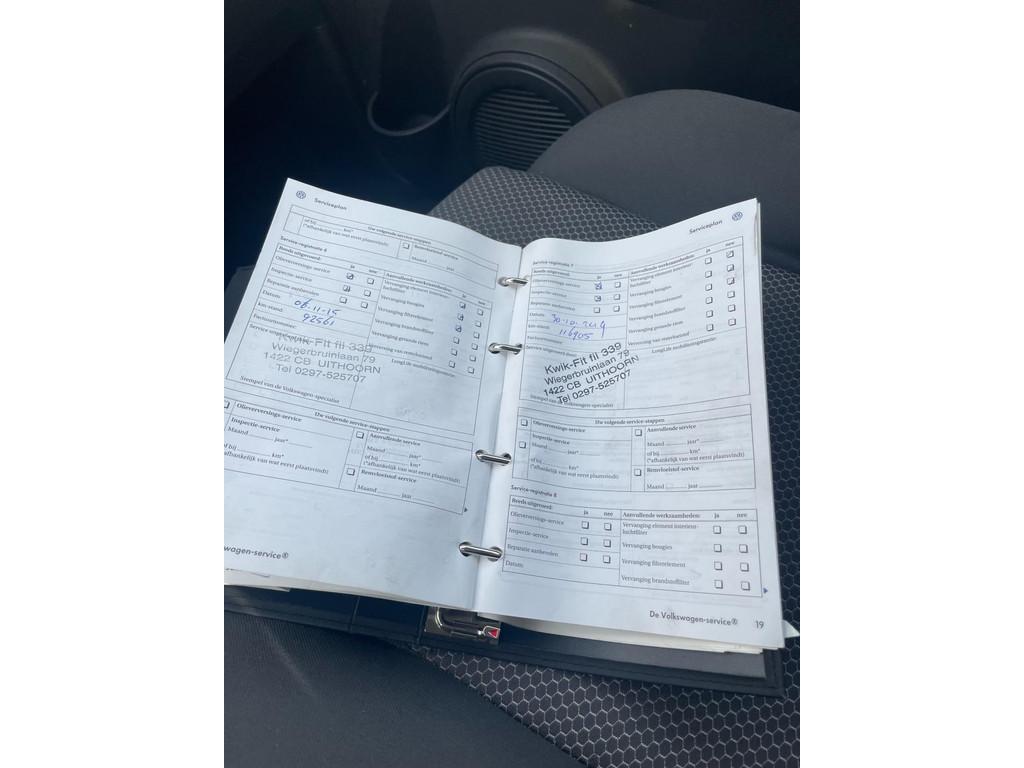 Serviceplan
Uw volgende service-stappen
of bij km*
(*afhankelijk van wat eerst plaatsvindt)
Remvloeistof-service
Maand jaar
Service-registratie 6
Reeds uitgevoerd: ja nee Aanvullende werkzaamheden: ja nee
Olieverversings-service
Vervanging element interieur-
luchtfilter
Inspectie-service
Vervanging bougies
Reparatie aanbevolen
Vervanging filterelement
Datum: 06-11-15
Vervanging brandstoffilter
km-stand: 92561
Vervanging getande riem
Factuurnummer:
Verversing van remvloeistof
Service uitgevoerd door:
LongLife mobiliteitsgarantie:
Kwik-Fit fil 339
Wiegerbruinlaan 79
1422 CB UITHOORN
Tel 0297-525707
Stempel van de Volkswagen-specialist
Uw volgende service-stappen
Olieverversings-service
Inspectie-service
Maand jaar*
of bij km*
(*afhankelijk van wat eerst plaatsvindt)
Aanvullende service
Maand jaar*
of bij km*
(*afhankelijk van wat eerst plaatsvindt)
Remvloeistof-service
Maand jaar
wagen-service®
Serviceplan
Service-registratie 7
Reeds uitgevoerd: ja nee Aanvullende werkzaamheden: ja nee
Olieverversings-service
Vervanging element interieur-
luchtfilter
Inspectie-service
Vervanging bougies
Reparatie aanbevolen
Vervanging filterelement
Datum:
Vervanging brandstoffilter
km-stand: 116905
Vervanging getande riem
Factuurnummer:
Verversing van remvloeistof
Service uitgevoerd door:
LongLife mobiliteitsgarantie:
Kwik-Fit fil 339
Wiegerbruinlaan 79
1422 CB UITHOORN
Tel 0297-525707
Stempel van de Volkswagen-specialist
Uw volgende service-stappen
Olieverversings-service
Inspectie-service
Maand jaar*
of bij km*
(*afhankelijk van wat eerst plaatsvindt)
Aanvullende service
Maand jaar*
of bij km*
(*afhankelijk van wat eerst plaatsvindt)
Remvloeistof-service
Maand jaar
Service-registratie 8
Reeds uitgevoerd: ja nee Aanvullende werkzaamheden: ja nee
Olieverversings-service
Vervanging element interieur-
luchtfilter
Inspectie-service
Vervanging bougies
Reparatie aanbevolen
Vervanging filterelement
Datum:
Vervanging brandstoffilter
De Volkswagen-service® 19